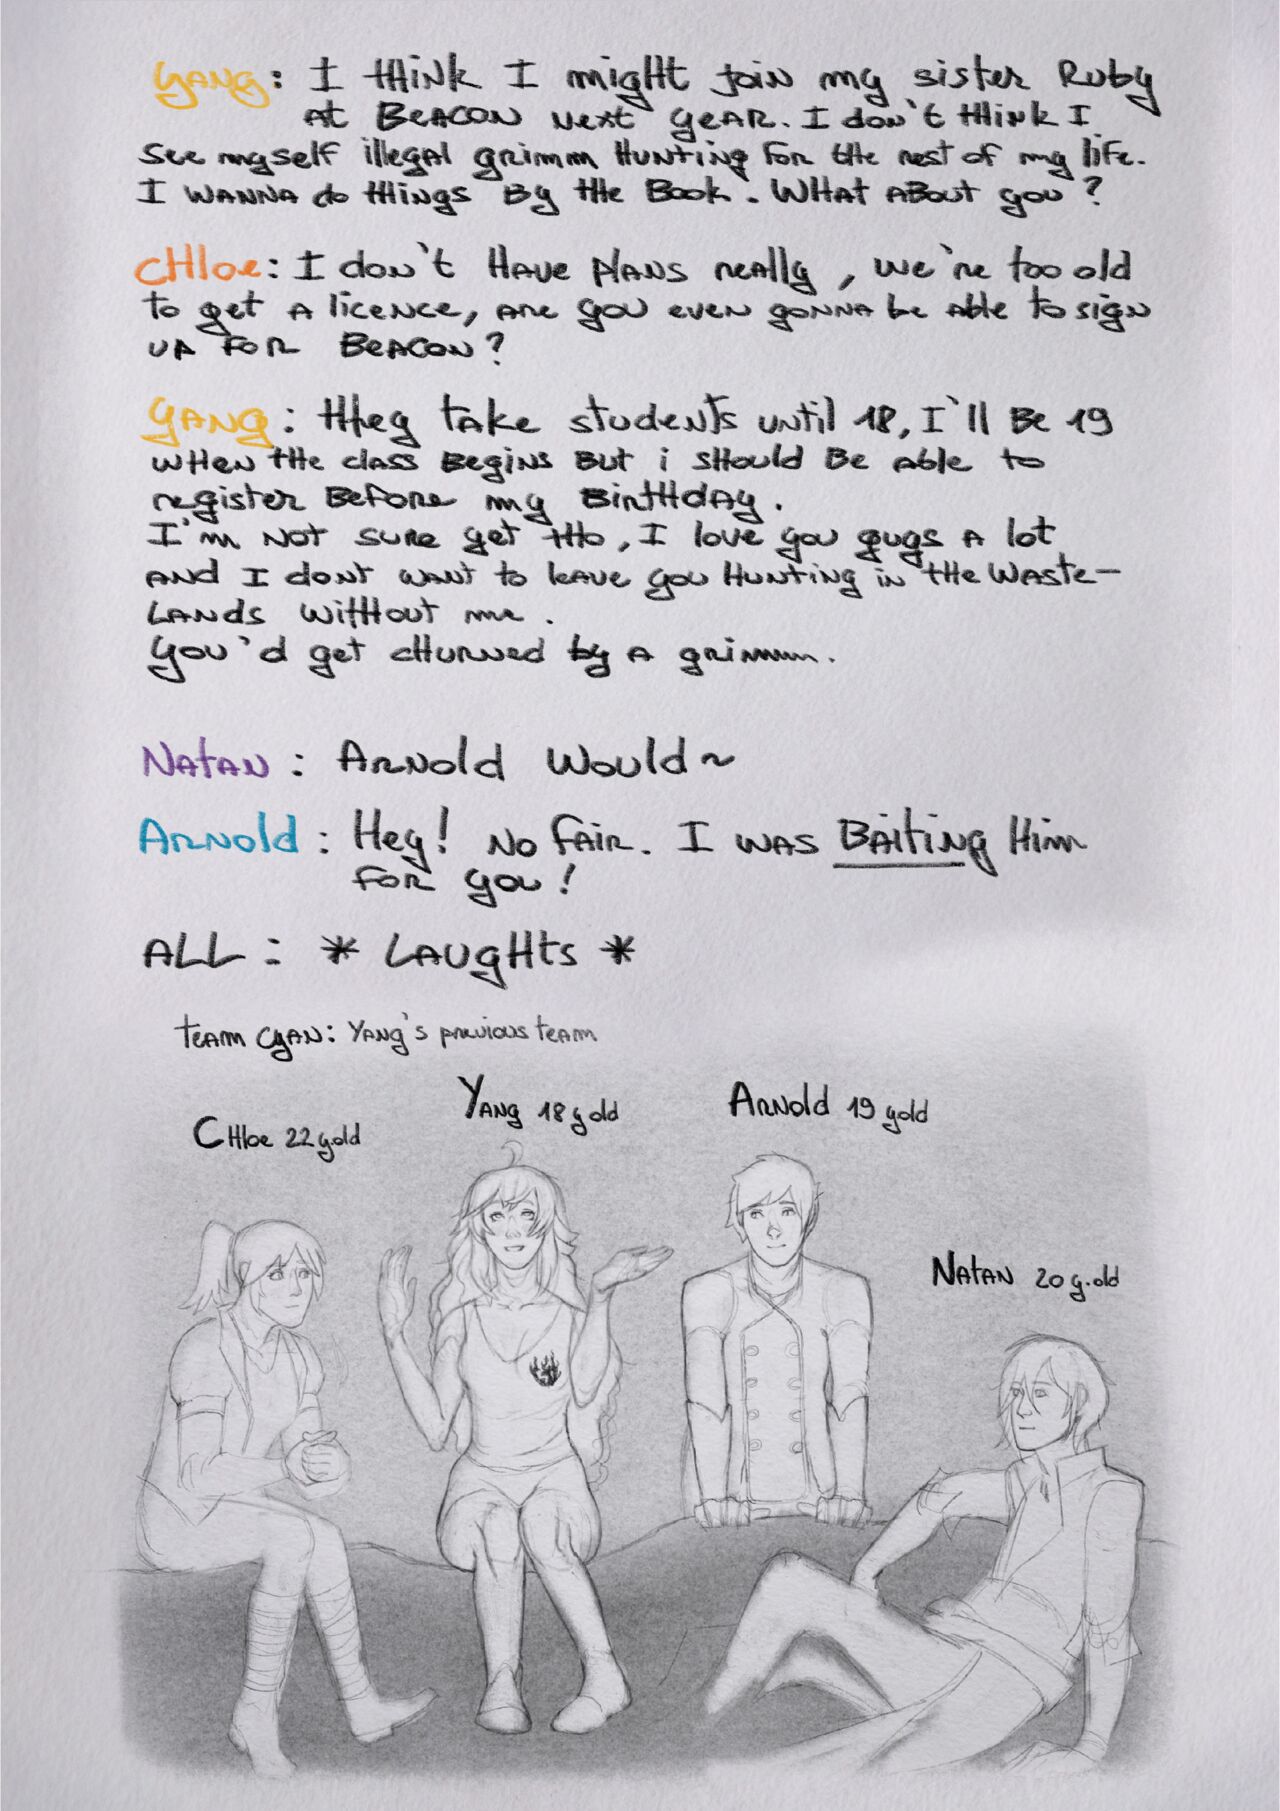 Yang: I think I might join my sister Ruby
at Beacon next year. I don't think I
see myself illegal grimm hunting for the rest of my life.
I wanna do things by the book. What about you?
Chloe: I don't have plans really, we're too old
to get a licence, are you even gonna be able to sign
up for Beacon?
Yang: They take students until 18, I'll be 19
when the class begins but i should be able to
register before my birthday.
I'm not sure yet tho, I love you guys a lot
and I dont want to leave you hunting in the waste-
lands without me.
You'd get churned by a grimm.
Natan: Arnold would~
Arnold: Hey! No fair. I was baiting him
for you!
ALL: * Laughts *
team cyan: Yang's previous team
Chloe 22 y.old
Yang 18 y old
Arnold 19 y old
Natan 20 y.old